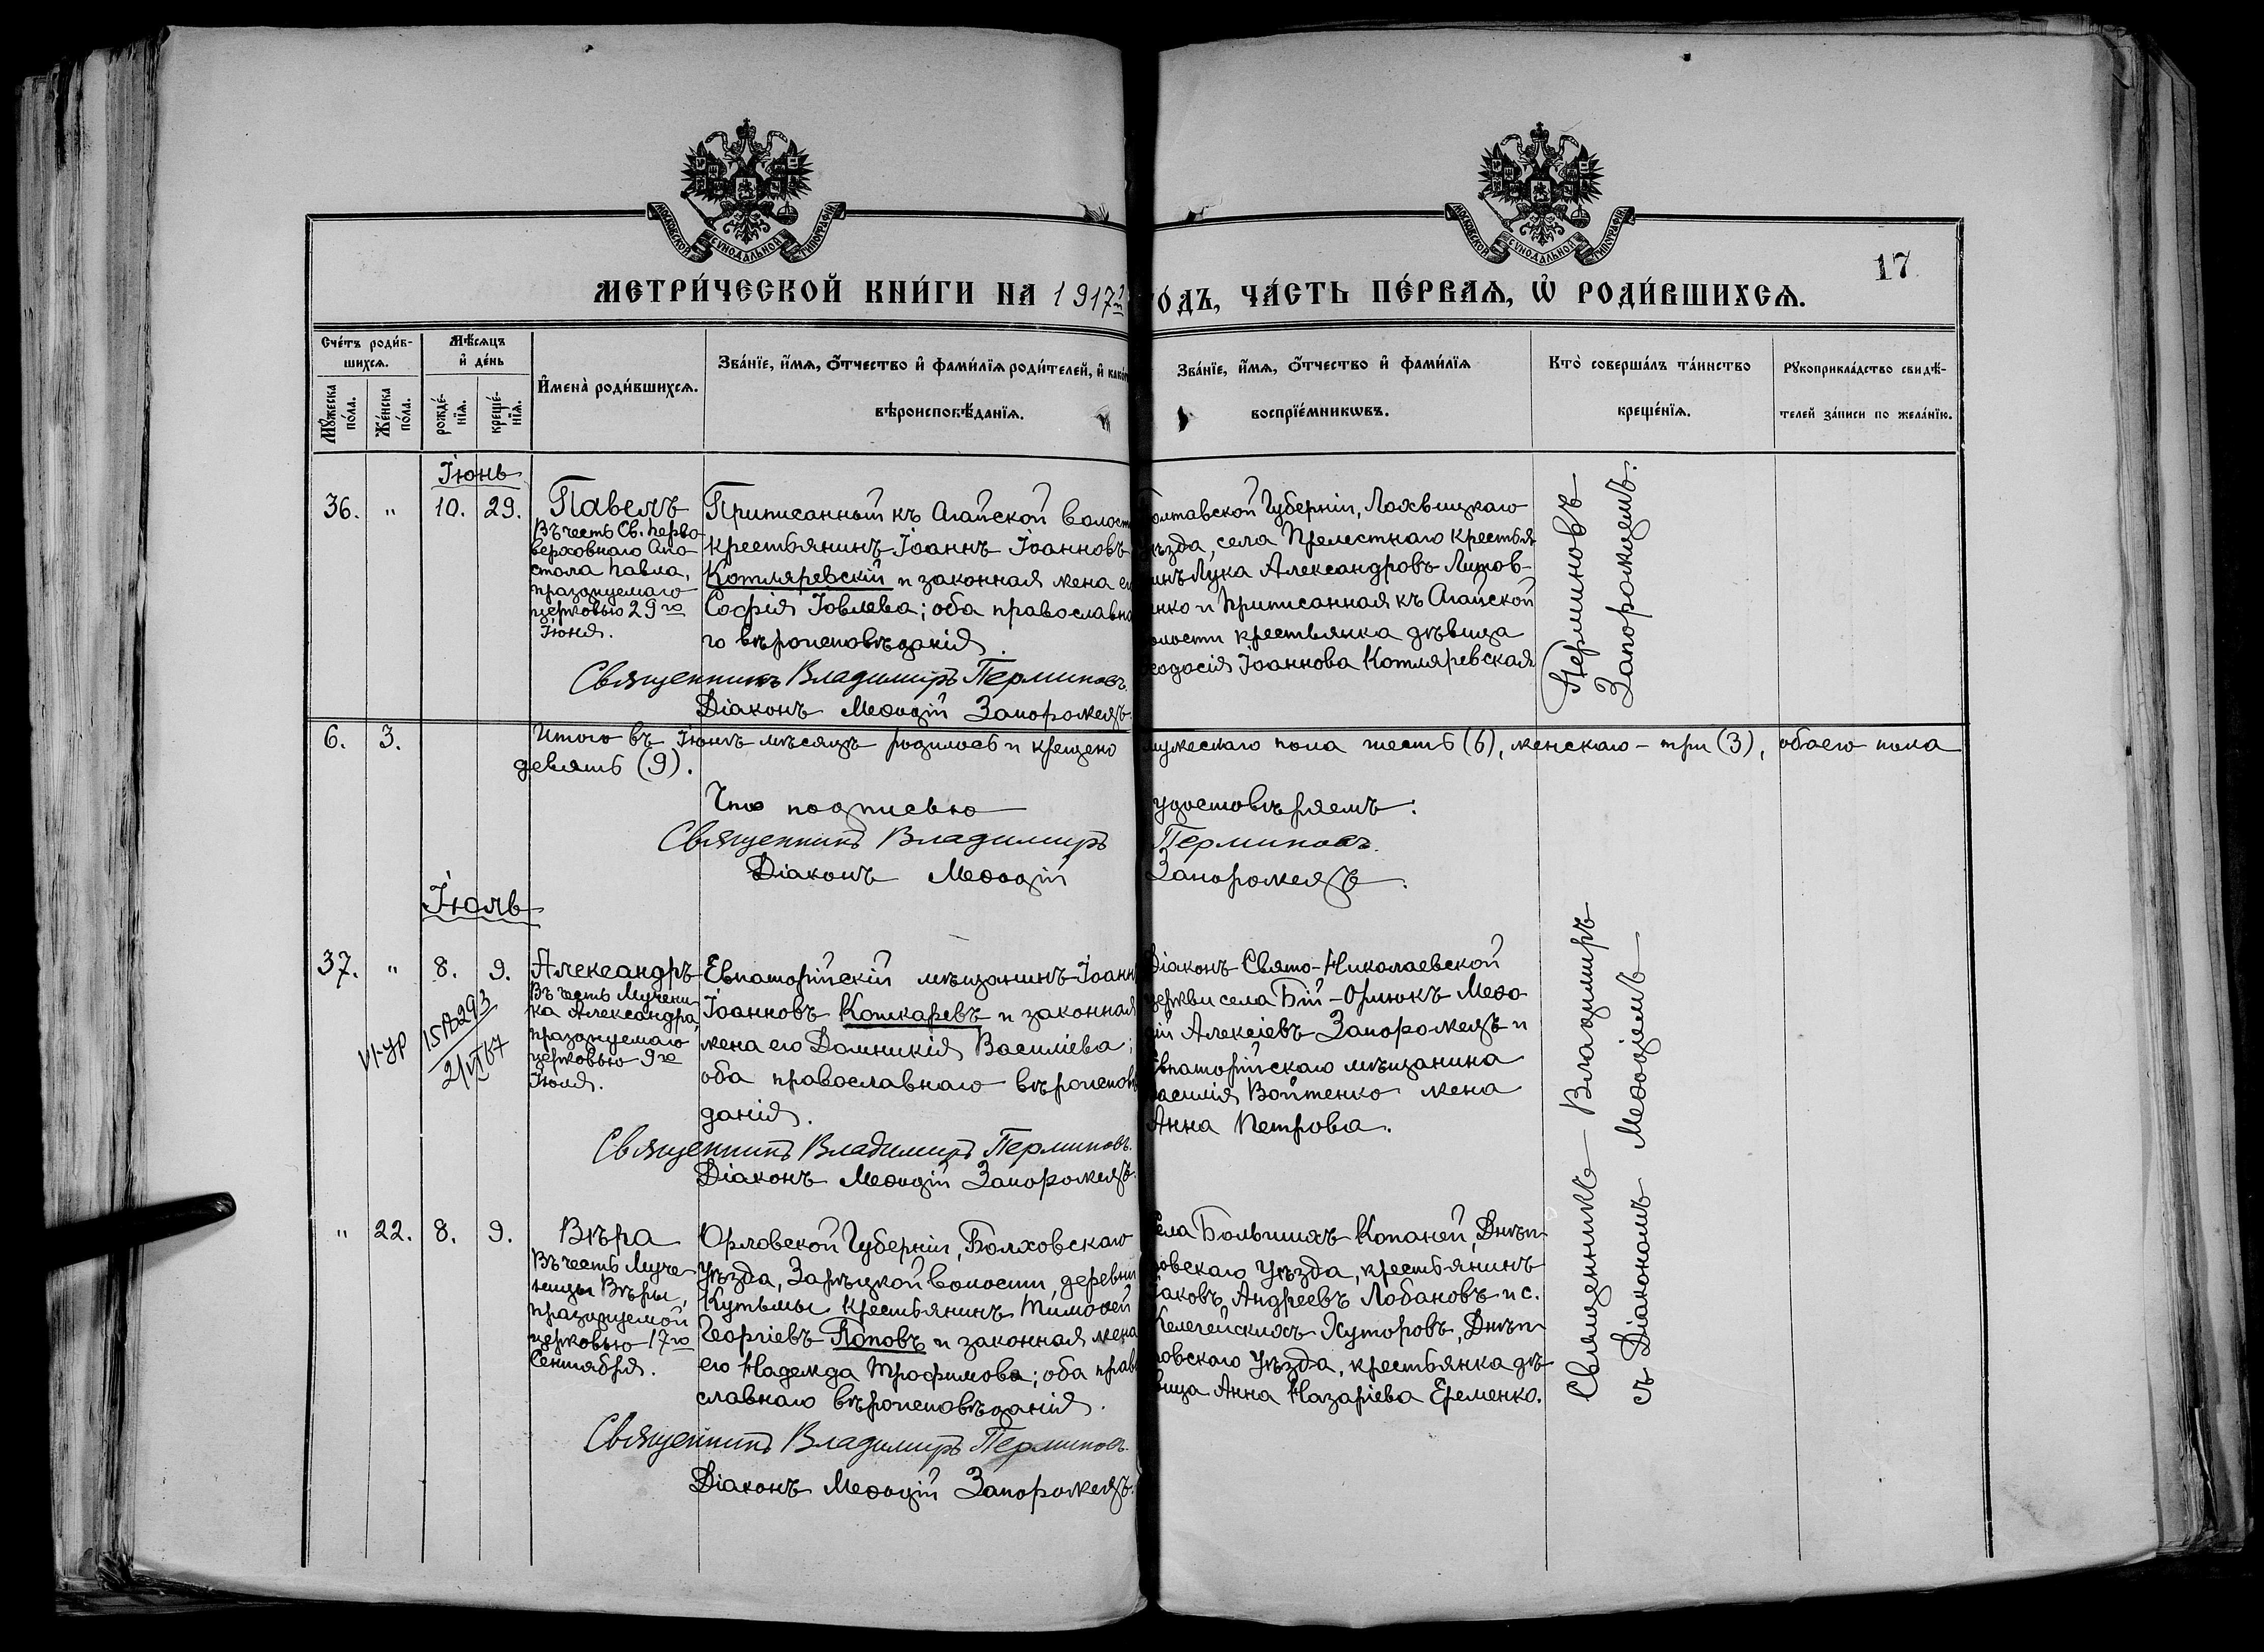 МОСКОВСКОЙ СѴНОДАЛЬНОЙ ТИПОГРАФІИ
МОСКОВСКОЙ СѴНОДАЛЬНОЙ ТИПОГРАФІИ
17
МЕТРИ́ЧЕСКОЙ КНИ́ГИ НА 1917
О́ДЪ, ЧА́СТЬ ПЕ́РВАѦ, Ѡ҆ РОДИ́ВШИХСѦ.
Сче́тъ роди́в-
шихсѧ.
Мѹ́жеска по́ла.
Же́нска по́ла.
Мѣ́сѧцъ
и҆ де́нь
рожде́-нїѧ.
креще́-нїѧ.
И҆мена̀ роди́вшихсѧ.
Зва́нїе, и҆́мѧ, ѻ҆́тчество и҆ фами́лїѧ роди́телей, и҆
вѣроисповѣ́данїѧ.
Зва́нїе, и҆́мѧ, ѻ҆́тчество и҆ фами́лїѧ
воспрїе́мникѡвъ.
Кто̀ соверша́лъ та́инство
креще́нїѧ.
Рꙋкоприкла́дство свидѣ́-
телей за́писи по жела́нїю.
Іюнь
36. " 10. 29.
Павелъ
Въ честь Св. перво-
верховнаго Апо-
стола Павла,
празднуемаго
церковью 29го
Іюня.
Приписанный къ Агайской волост
крестьянинъ Іоаннъ Іоанновъ
Котляревскій и законная жена е
Софія Іовлева; оба православна
го вѣроисповѣданія.
Священникъ Владимиръ Перминовъ.
Діаконъ Меѳодій Запорожецъ.
олтавской Губерніи, Лохвицкаго
ѣзда, села Прелестнаго крестья
инъ Лука Александровъ Литов-
нко и приписанная къ Агайской
олости крестьянка дѣвица
еодосія Іоаннова Котляревская
Перминовъ
Запорожцемъ.
6. 3.
Итого въ Іюнѣ мѣсяцѣ родилось и крещено мужескаго пола шесть (6), женскаго - три (3), обоего пола
девять (9).
Что подписью удостовѣряемъ:
Священникъ Владимиръ Перминовъ.
Діаконъ Меѳодій Запорожецъ.
Іюль
37. " 8. 9.
Александръ
Въ честь Мучени-
ка Александра,
празднуемаго
церковью 9го
Іюля.
Евпаторійскій мѣщанинъ Іоанн
Іоанновъ Кошкаревъ и законная
жена его Домникія Василіева;
оба православнаго вѣроисповѣ
данія.
Священникъ Владимиръ Перминовъ.
Діаконъ Меѳодій Запорожецъ.
Діаконъ Свято-Николаевской
церкви села Бій-Орлюкъ Меѳо
дій Алексіевъ Запорожецъ и
Евпаторійскаго мѣщанина
Василія Войтенко жена
Анна Петрова.
Священникъ Владимиръ
съ Діакономъ Меѳодіемъ
" 22. 8. 9.
Вѣра
Въ честь Муче-
ницы Вѣры,
празднуемой
церковью 17го
Сентября.
Орловской Губерніи, Болховскаго
Уѣзда, Зарѣцкой волости, деревни
Кутьмы крестьянинъ Тимоѳей
Георгіевъ Поповъ и законная жена
его Надежда Трофимова; оба прав
славнаго вѣроисповѣданія.
Священникъ Владимиръ Перминовъ.
Діаконъ Меѳодій Запорожецъ.
ела Большихъ Копаней, Днѣп
ровскаго Уѣзда, крестьянинъ
аковъ Андреевъ Лобановъ и с.
Келегейскихъ Хуторовъ, Днѣп
ровскаго Уѣзда, крестьянка дѣ
вица Анна Назаріева Еременко.